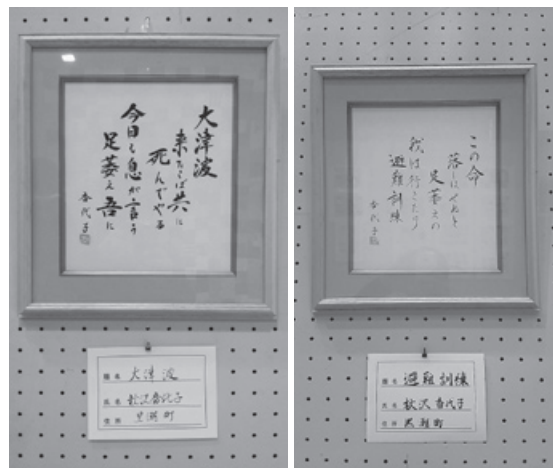 大津波
来たらば共に
死んでやる
今日も息が言う
足萎え吾に
香代子
題名 大津波
氏名 秋沢香代子
住所 黒潮町
この命
落としはせぬと
足萎えの
我は行きたり
避難訓練
香代子
題名 避難訓練
氏名 秋沢香代子
住所 黒潮町